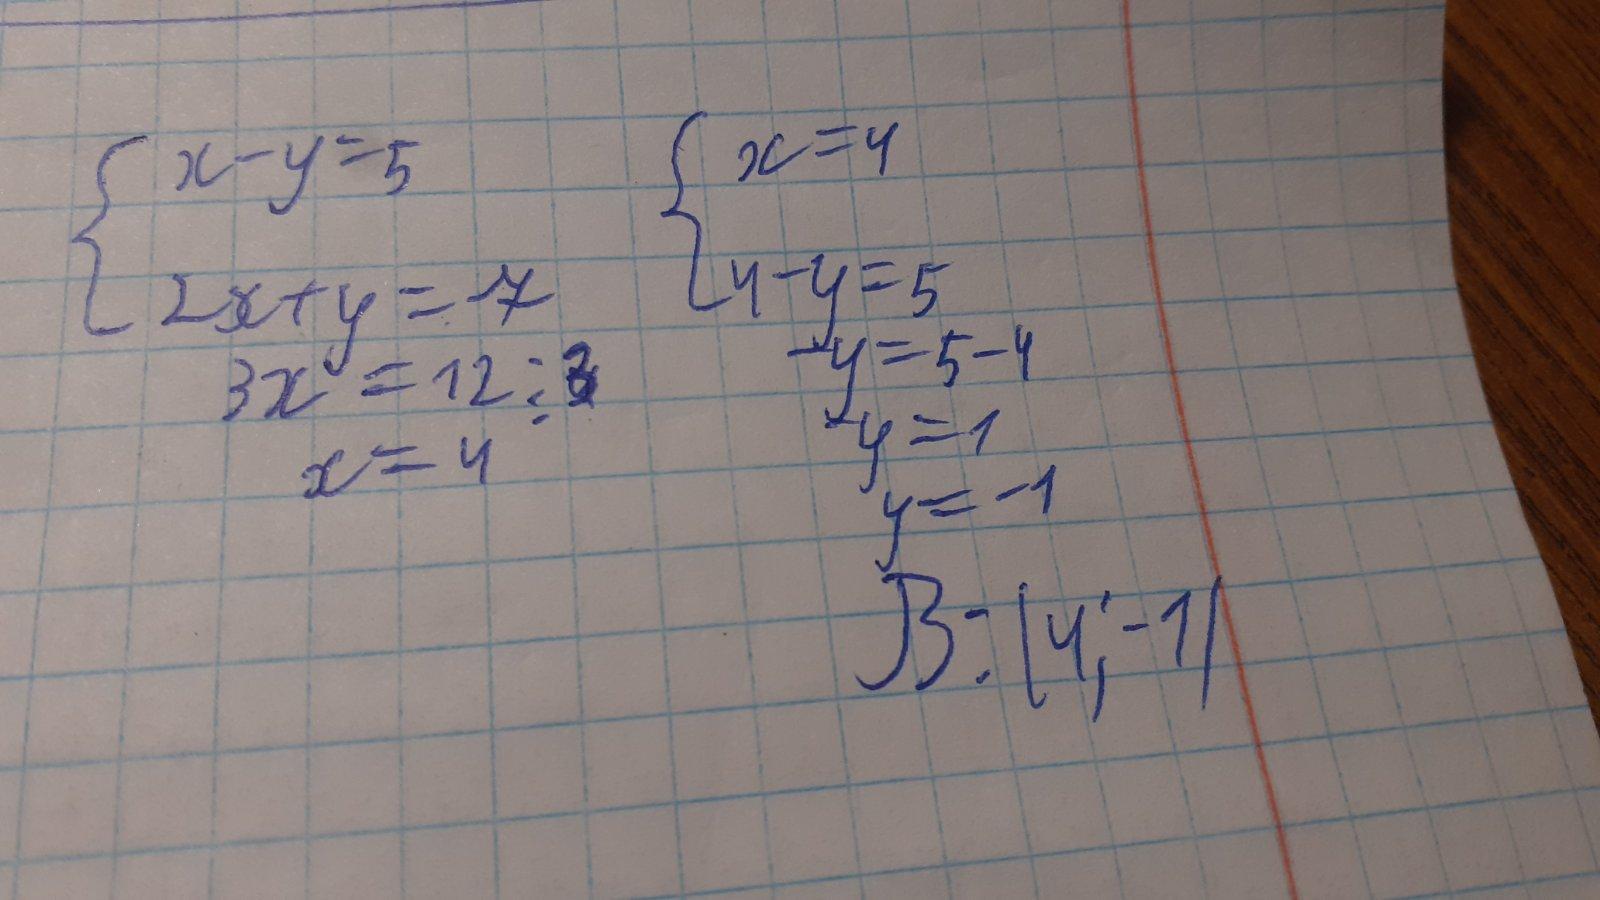 x-y=5
2x+y=7
3x=12:3
x=4
x=4
4-y=5
-y=5-4
-y=1
y=-1
B:(4;-1)